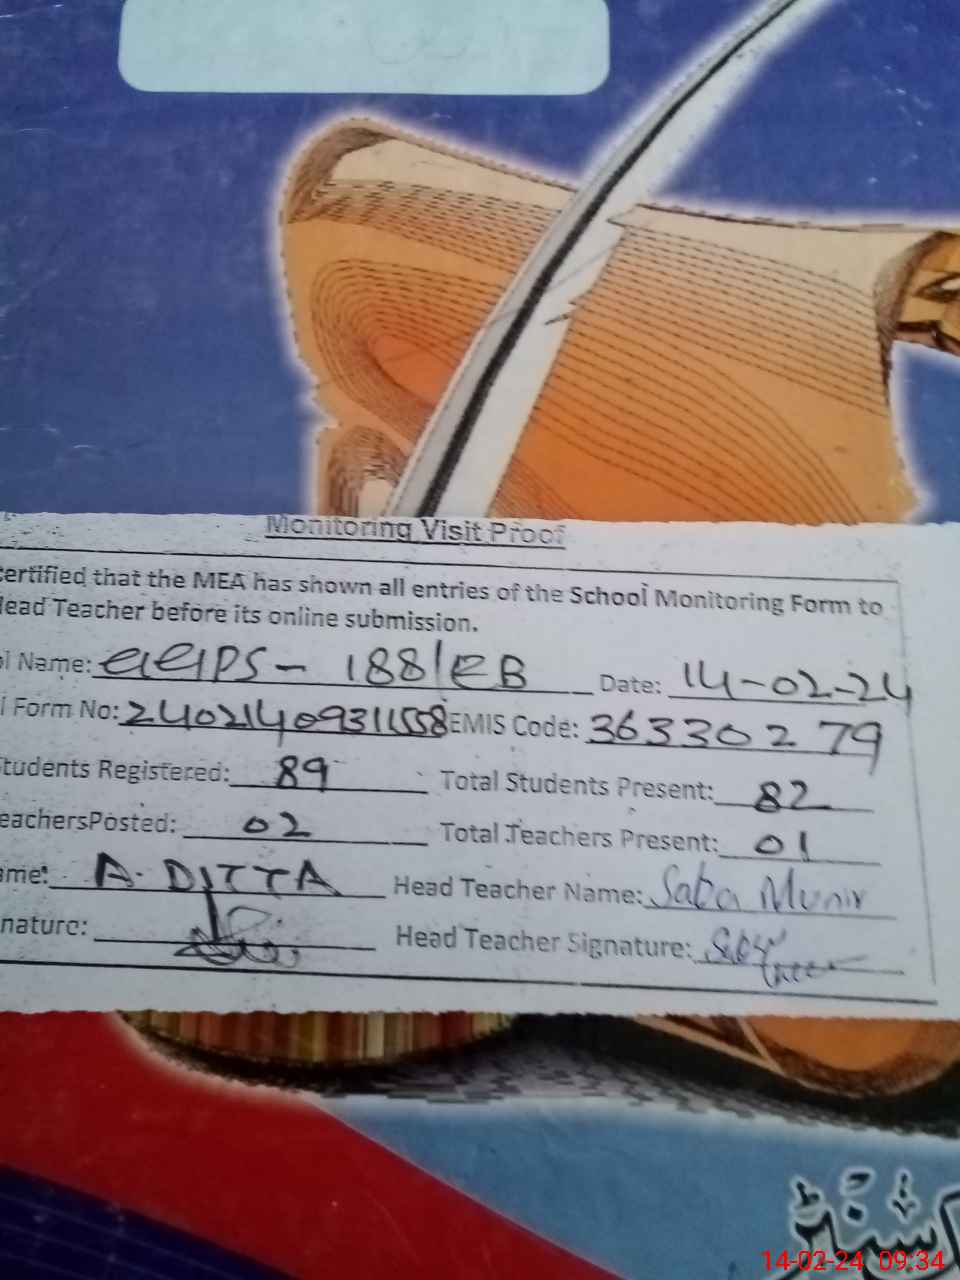 Monitoring Visit Proof
certified that the MEA has shown all entries of the School Monitoring Form to
Head Teacher before its online submission.
ol Name: GGPS - 188/EB Date: 14-02-24
l Form No: 24021409311558 EMIS Code: 36330279
Students Registered: 89 Total Students Present: 82
eachersPosted: 02 Total Teachers Present: 01
ame: A. DITTA Head Teacher Name: Saba Munir
nature: Head Teacher Signature:
14-02-24 09:34